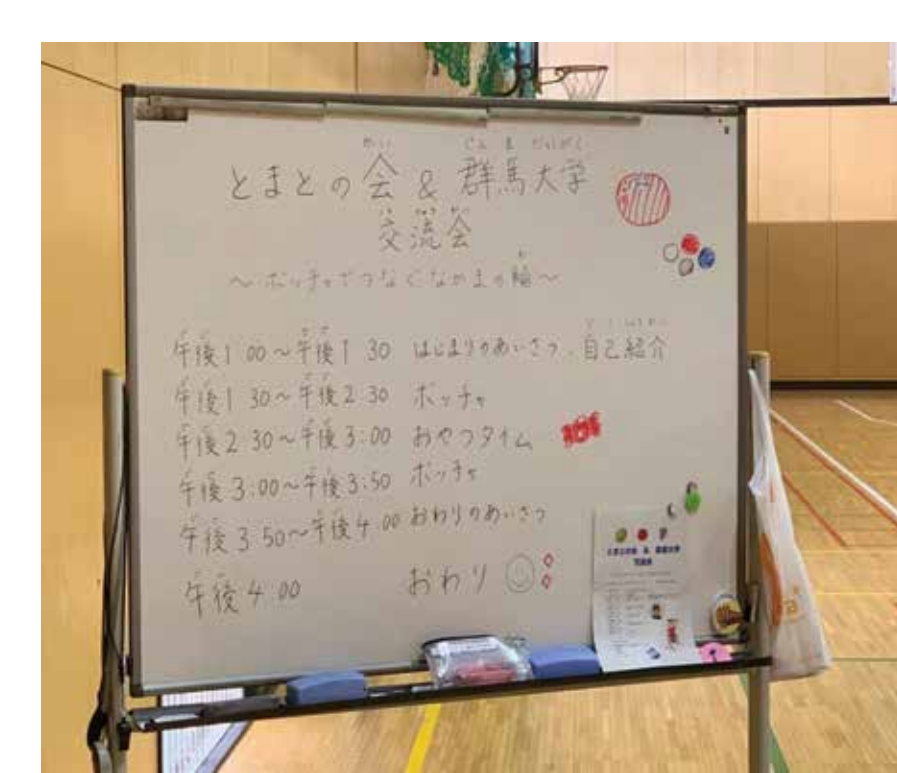 とまとの会 & 群馬大学
交流会
～ボッチャでつなぐなかまの輪～
午後1:00～午後1:30 はじまりのあいさつ・自己紹介
午後1:30～午後2:30 ボッチャ
午後2:30～午後3:00 おやつタイム
午後3:00～午後3:50 ボッチャ
午後3:50～午後4:00 おわりのあいさつ
午後4:00 おわり